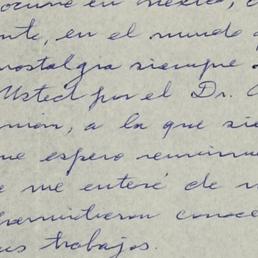 ocurre en México, c
nte, en el mundo
nostalgia siempre
Usted por el Dr. C
nión, a la que sie
me espero reanimu
e me enteré de
permitieron conoce
us trabajos.